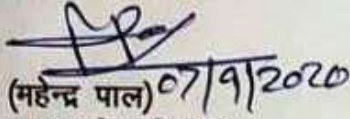 (महेन्द्र पाल) 07/9/2020